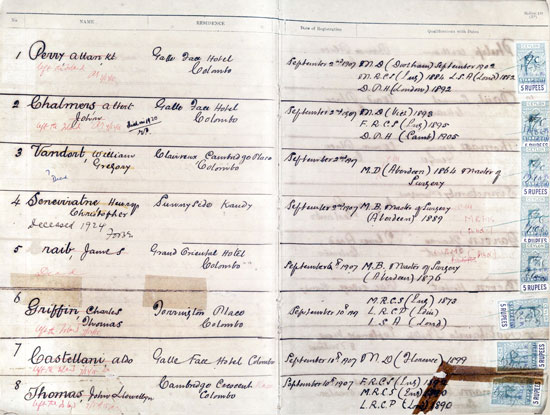 No. NAME RESIDENCE Date of Registration Qualifications with Dates
1 Perry allan kt Galle Face Hotel September 2nd 1907 M.D (Durham) September 1902
Colombo M.R.C.S (Eng) 1884 L.S.A (Lond) 1882
D.P.H (London) 1892
2 Chalmers albert Galle Face Hotel September 2nd 1907 M.D (Vict) 1893
John Died in 1920 Colombo F.R.C.S (Eng) 1895
left the Island D.P.H (Camb) 1905
3 Vandort William Claireux Cambridge Place September 2nd 1907
Gregory Colombo M.D (Aberdeen) 1864 Master of
? Dead Surgery
4 Seneviratne Henry Sunnyside Kandy September 2nd 1907 M.B. Master of Surgery
Christopher (Aberdeen) 1889
Deceased 1924
5 Trait James Grand Oriental Hotel September 1907 M.B. Master of Surgery
Colombo (Aberdeen) 1876
6 M.R.C.S (Eng) 1873
Griffin Charles Torrington Place September 10th 1907 L.R.C.P (Lon)
Thomas Colombo L.S.A (Lond)
left the Island
7 Castellani aldo Galle Face Hotel Colombo September 10th 1907 M.D (Florence) 1899
left the Island
8 Cambridge Crescent September 1907 F.R.C.S
Thomas John Llewellyn Colombo M.R.C.S (Eng) 1890
left the Island L.R.C.P (Lon) 1890
5 RUPEES
5 RUPEES
5 RUPEES
5 RUPEES
5 RUPEES
5 RUPEES
5 RUPEES
5 RUPEES